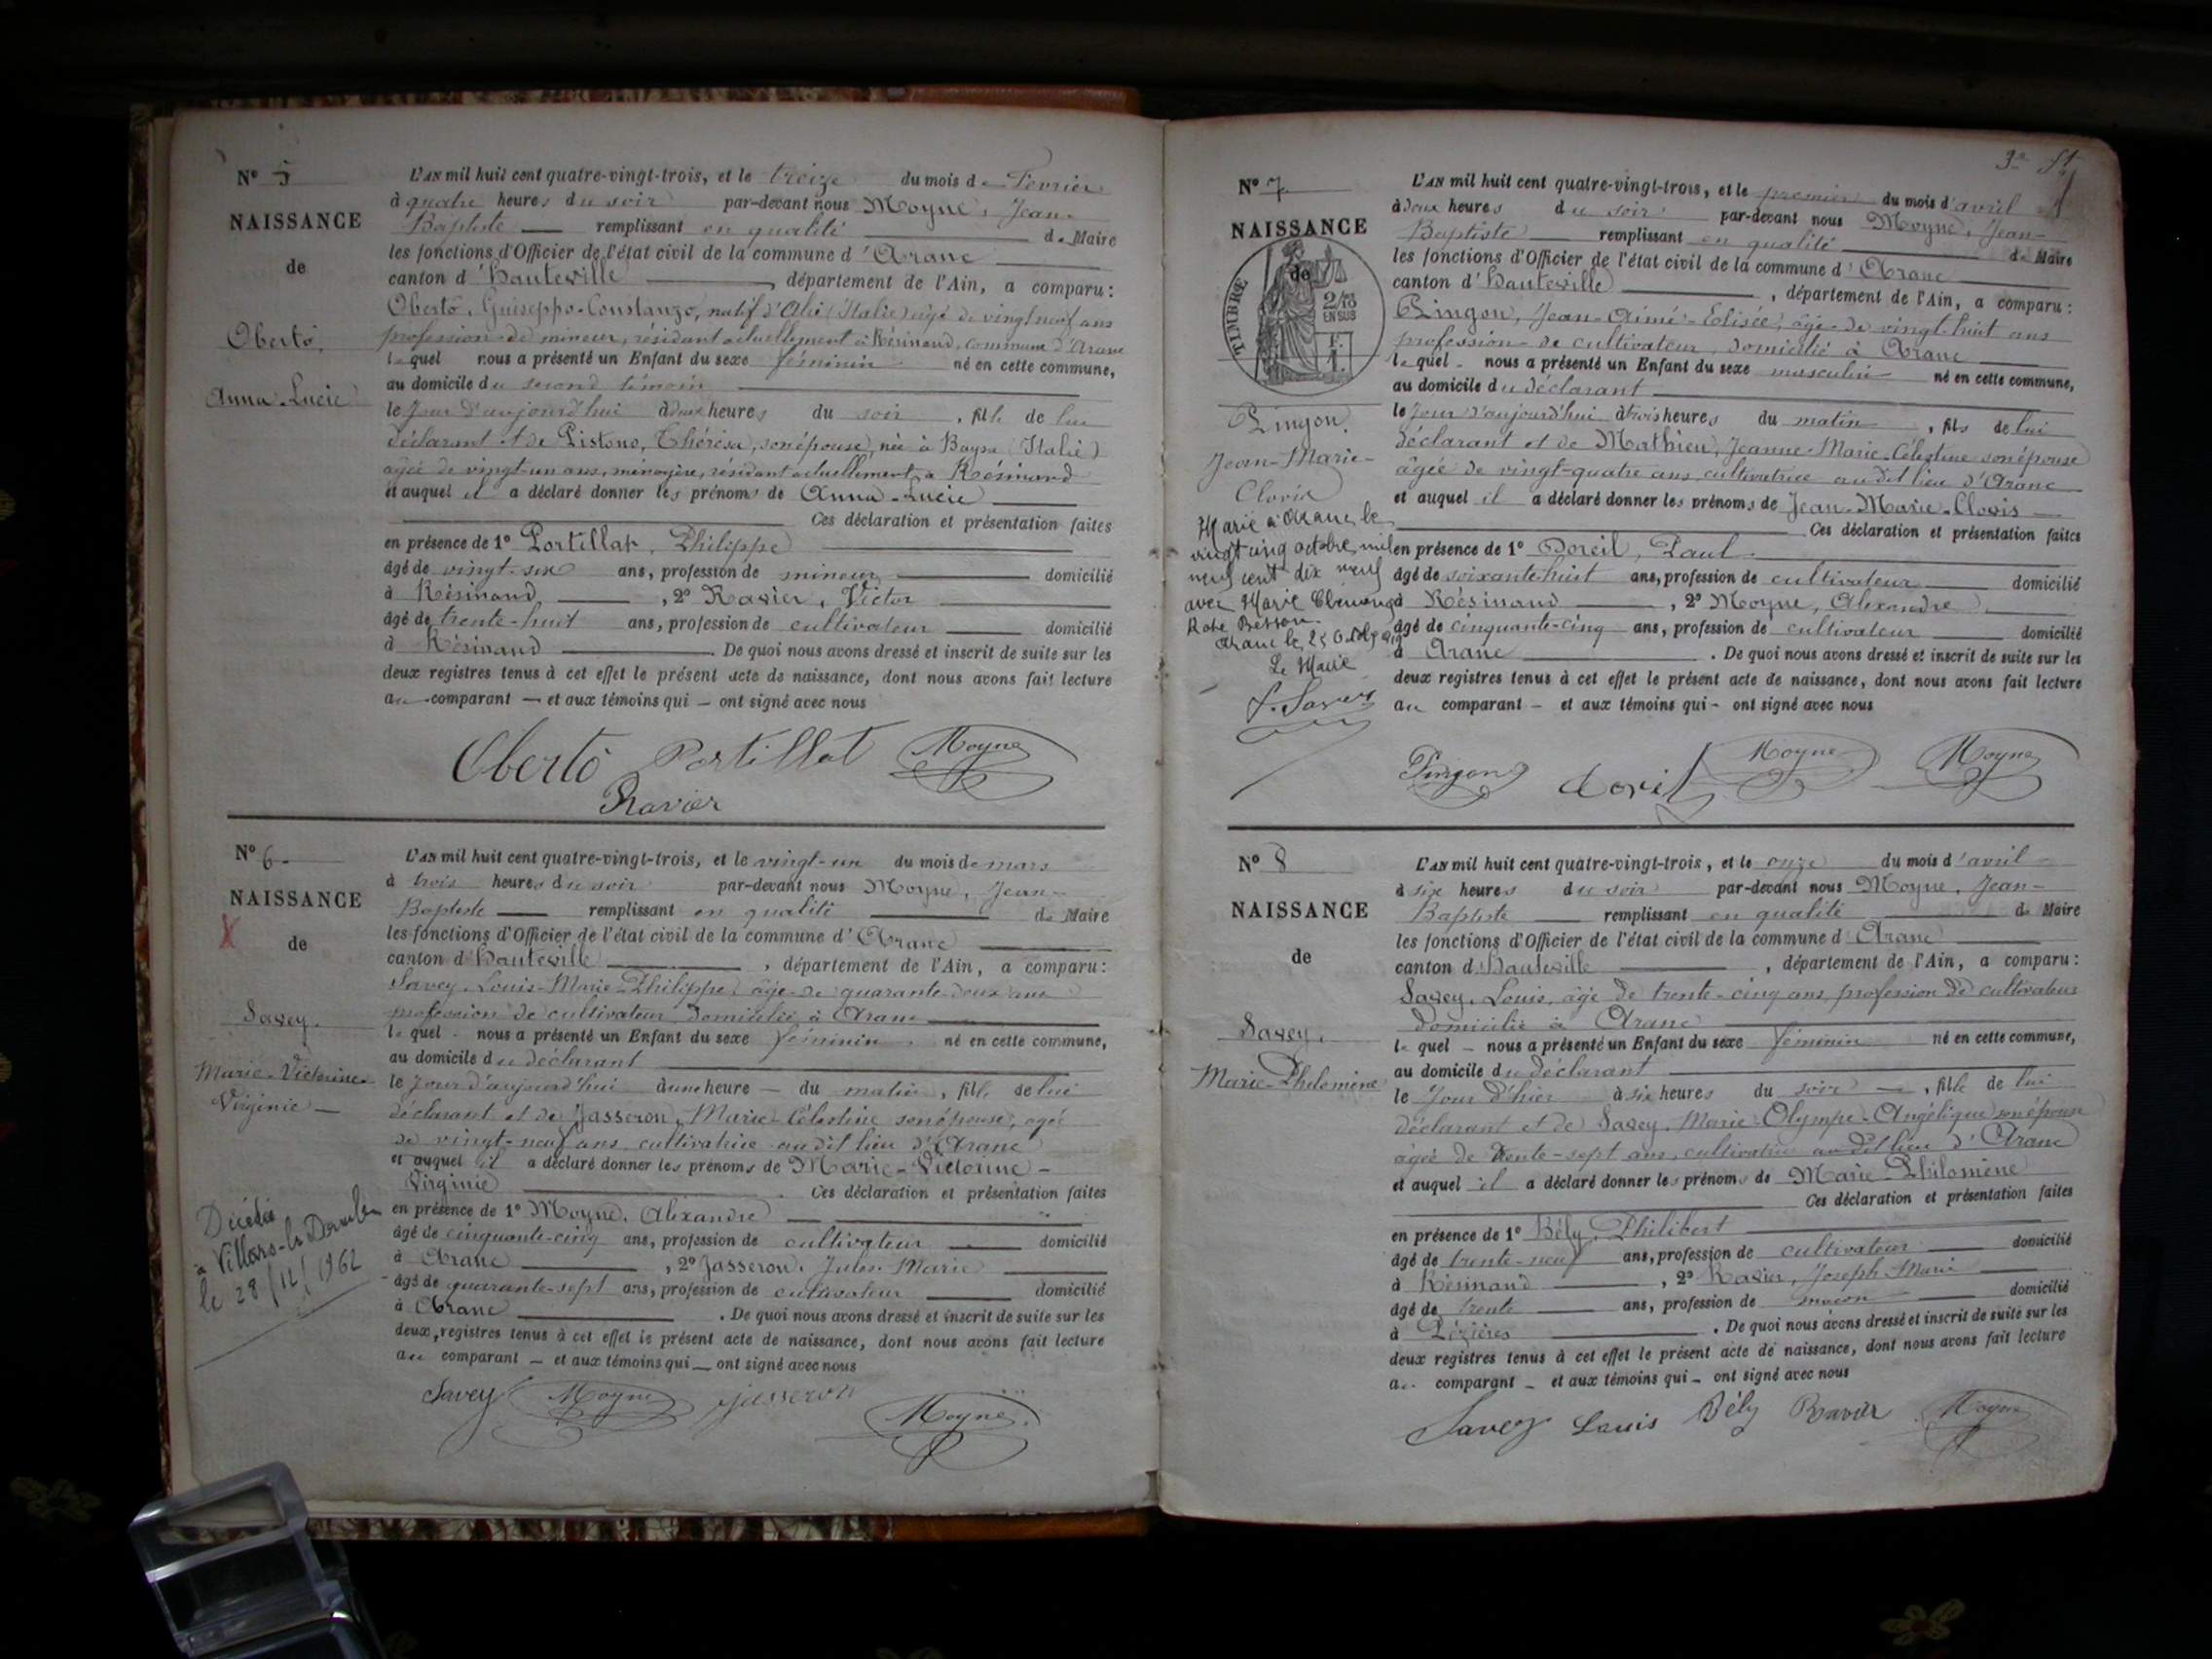 N° 5
NAISSANCE
de
Oberto,
Anna-Lucie
L'AN mil huit cent quatre-vingt-trois, et le treize du mois de Février
à quatre heures du soir par-devant nous Moyne, Jean-
Baptiste remplissant en qualité de Maire
les fonctions d'Officier de l'état civil de la commune d'Aranc
canton d'Hauteville, département de l'Ain, a comparu:
Oberto, Guiseppo-Constanzo, natif d' (Italie) âgé de vingt neuf ans
profession de mineur, résidant actuellement à Résinand, commune d'Aranc
lequel nous a présenté un Enfant du sexe féminin né en cette commune,
au domicile du second témoin
le jour d'aujourd'hui à deux heures du soir, fille de lui
déclarant et de Pistono, Thérèsa, son épouse, née à (Italie)
âgée de vingt-un ans, ménagère, résidant actuellement à Résinand
et auquel il a déclaré donner les prénoms de Anna-Lucie
Ces déclaration et présentation faites
en présence de 1° Portillat, Philippe
âgé de vingt-six ans, profession de mineur domicilié
à Résinand, 2° Ravier, Victor
âgé de trente-huit ans, profession de cultivateur domicilié
à Résinand. De quoi nous avons dressé et inscrit de suite sur les
deux registres tenus à cet effet le présent acte de naissance, dont nous avons fait lecture
au comparant — et aux témoins qui — ont signé avec nous
Oberto Portillat Moyne
Ravier
N° 6
NAISSANCE
X de
Savey.
Marie-Victorine-
Virginie —
Décédée
à Villars-les-Dombes
le 28/12/1962
L'AN mil huit cent quatre-vingt-trois, et le vingt-un du mois de mars
à trois heures du soir par-devant nous Moyne, Jean-
Baptiste remplissant en qualité de Maire
les fonctions d'Officier de l'état civil de la commune d'Aranc
canton d'Hauteville, département de l'Ain, a comparu:
Savey, Louis-Marie-Philippe, âgé de quarante-deux ans
profession de cultivateur domicilié à Aranc
lequel nous a présenté un Enfant du sexe féminin né en cette commune,
au domicile du déclarant
le jour d'aujourd'hui à une heure — du matin, fille de lui
déclarant et de Jasseron, Marie-Célestine son épouse, agée
de vingt-neuf ans, cultivatrice au dit lieu d'Aranc
et auquel il a déclaré donner les prénoms de Marie-Victorine-
Virginie Ces déclaration et présentation faites
en présence de 1° Moyne, Alexandre
âgé de cinquante-cinq ans, profession de cultivateur domicilié
à Aranc, 2° Jasseron, Jules-Marie
âgé de quarante-sept ans, profession de cultivateur domicilié
à Aranc. De quoi nous avons dressé et inscrit de suite sur les
deux registres tenus à cet effet le présent acte de naissance, dont nous avons fait lecture
au comparant — et aux témoins qui — ont signé avec nous
Savey Moyne Jasseron
Moyne
N° 7
NAISSANCE
de
TIMBRE
2/10
EN SUS
Pingon,
Jean-Marie-
Clovis
Marié à Aranc, le
vingt cinq octobre, mil
neuf cent dix neuf
avec Marie
Rose Besson.
Aranc le 25 Octobre 1919
Le Maire
F. Savey
L'AN mil huit cent quatre-vingt-trois, et le premier du mois d'avril
à deux heures du soir par-devant nous Moyne, Jean-
Baptiste remplissant en qualité de Maire
les fonctions d'Officier de l'état civil de la commune d'Aranc
canton d'Hauteville, département de l'Ain, a comparu:
Pingon, Jean-Aimé-Elisée, âgé de vingt-huit ans
profession de cultivateur, domicilié à Aranc
lequel nous a présenté un Enfant du sexe masculin né en cette commune,
au domicile du déclarant
le jour d'aujourd'hui à trois heures du matin, fils de lui
déclarant et de Mathieu, Jeanne-Marie-Célestine son épouse
âgée de vingt-quatre ans cultivatrice au dit lieu d'Aranc
et auquel il a déclaré donner les prénoms de Jean-Marie-Clovis
Ces déclaration et présentation faites
en présence de 1° Doreil, Paul
âgé de soixante-huit ans, profession de cultivateur domicilié
à Résinand, 2° Moyne, Alexandre
âgé de cinquante-cinq ans, profession de cultivateur domicilié
à Aranc. De quoi nous avons dressé et inscrit de suite sur les
deux registres tenus à cet effet le présent acte de naissance, dont nous avons fait lecture
au comparant — et aux témoins qui - ont signé avec nous
Pingon Moyne Moyne
N° 8
NAISSANCE
de
Savey.
Marie-Philomène
L'AN mil huit cent quatre-vingt-trois, et le onze du mois d'avril
à six heures du soir par-devant nous Moyne, Jean-
Baptiste remplissant en qualité de Maire
les fonctions d'Officier de l'état civil de la commune d'Aranc
canton d'Hauteville, département de l'Ain, a comparu:
Savey, Louis, âgé de trente-cinq ans, profession de cultivateur
domicilié à Aranc
lequel nous a présenté un Enfant du sexe féminin né en cette commune,
au domicile du déclarant
le jour d'hier à six heures du soir, fille de lui
déclarant et de Savey, Marie-Olympe-Angélique son épouse
agée de trente-sept ans, cultivatrice au dit lieu d'Aranc
et auquel il a déclaré donner les prénoms de Marie-Philomène
Ces déclaration et présentation faites
en présence de 1° Bély, Philibert
âgé de trente-neuf ans, profession de cultivateur domicilié
à Résinand, 2° Ravier, Joseph-Marie
âgé de trente ans, profession de maçon domicilié
à Pézières. De quoi nous avons dressé et inscrit de suite sur les
deux registres tenus à cet effet le présent acte de naissance, dont nous avons fait lecture
au comparant — et aux témoins qui — ont signé avec nous
Savey Louis Bély Ravier Moyne